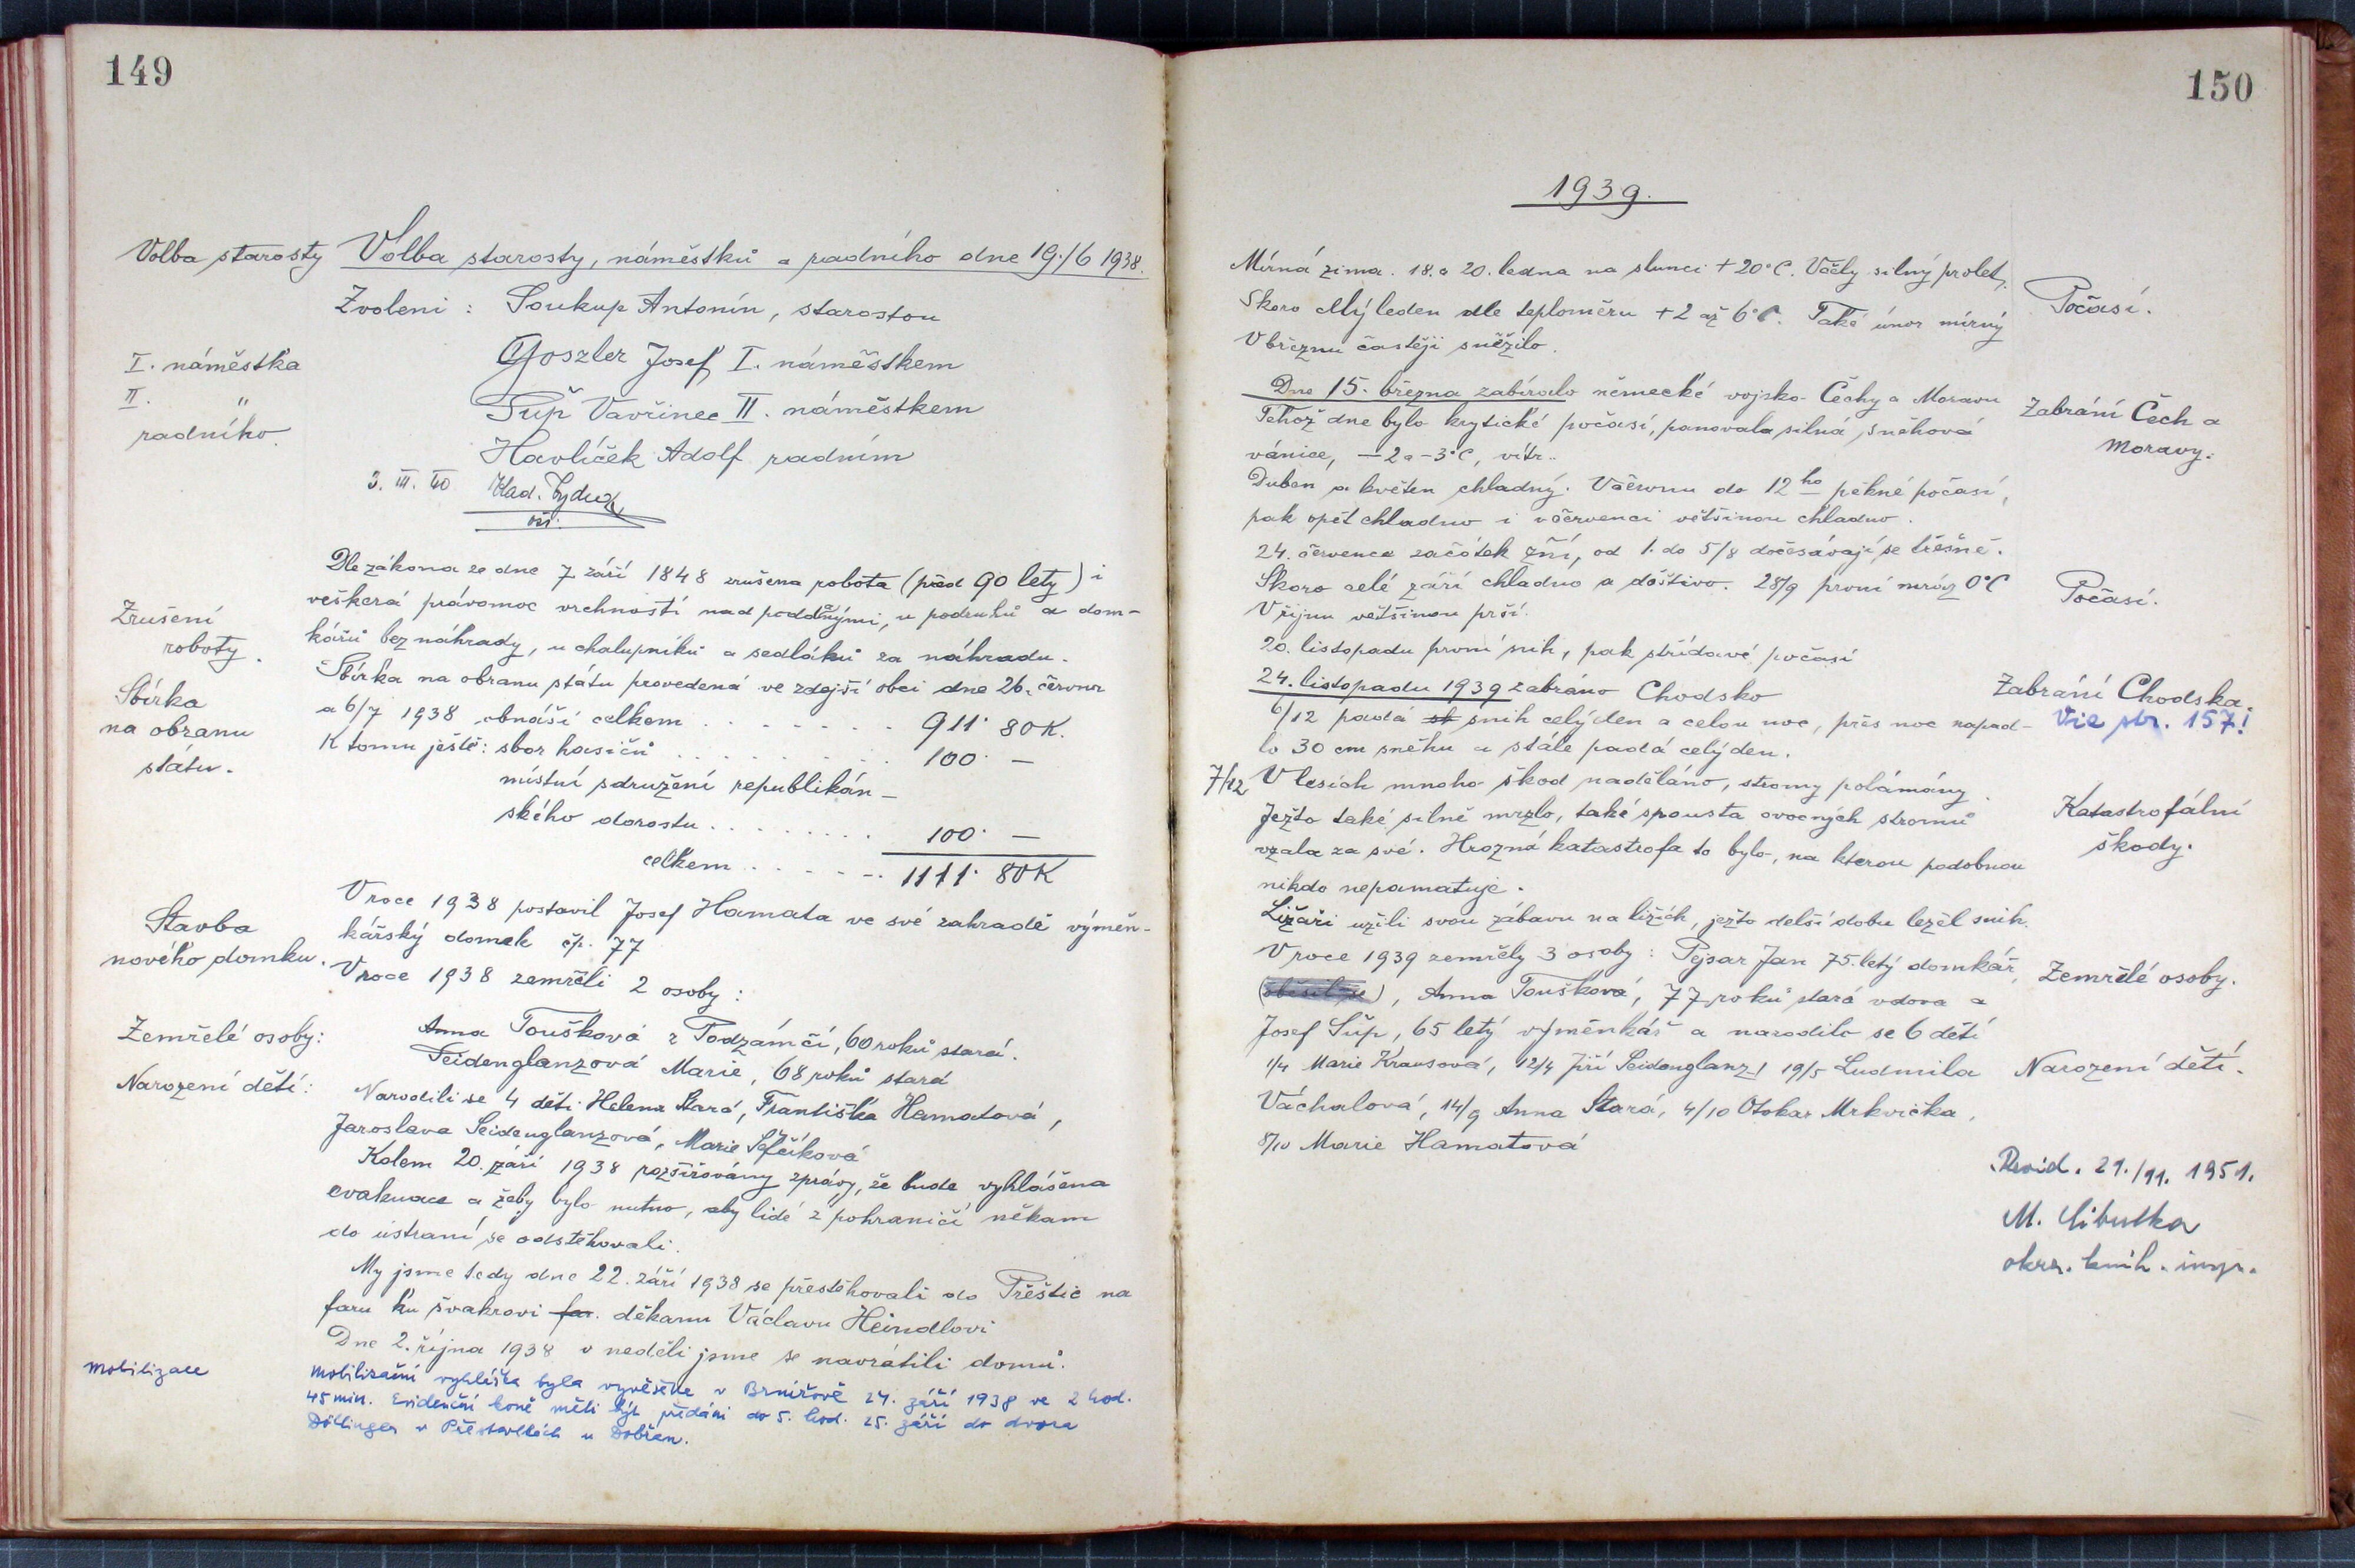 149
Volba starosty Volba starosty, náměstků a radního dne 19./6 1938.
Zvoleni : Soukup Antonín, starostou
I. náměstka Goszler Josef I. náměstkem
II. " Šup Vavřinec II. náměstkem
radního. Havlíček Adolf radním
3. III. 40
Dle zákona ze dne 7. září 1848 zrušena robota (před 90 lety) i
veškerá právomoc vrchností nad poddanými, u podruhů a dom-
Zrušení kářů bez náhrady, u chalupníků a sedláků za náhradu.
roboty.
Sbírka na obranu státu provedená ve zdejší obci dne 26. června
Sbírka a 6/7 1938 obnáší celkem . . . . . . . 911· 80 K.
na obranu K tomu ještě: sbor hasičů . . . . . . . . . 100· —
státu. místní sdružení republikán-
ského dorostu . . . . . . . . . 100· —
celkem . . . . . . . 1111· 80 K
Stavba V roce 1938 postavil Josef Hamata ve své zahradě výměn-
nového domku. kářský domek čp. 77
V roce 1938 zemřeli 2 osoby :
Zemřelé osoby: Anna Toušková z Podzámčí, 60 roků stará.
Seidenglanzová Marie, 68 roků stará
Narození dětí: Narodili se 4 děti Helena Stará, Františka Hamatová,
Jaroslava Seidenglanzová, Marie Šefčíková
Kolem 20. září 1938 rozšiřovány zprávy, že bude vyhlášena
evakuace a žeby bylo nutno, aby lidé z pohraničí někam
do ústraní se odstěhovali.
My jsme tedy dne 22. září 1938 se přestěhovali do Přeštic na
faru ku švakrovi far. děkanu Václavu Heindlovi
Dne 2. října 1938 v neděli jsme se navrátili domů.
Mobilizace Mobilisační vyhláška byla vyvěšena v Brnířově 24. září 1938 ve 2 hod.
45 min. Evidenční koně měli být předáni do 5. hod. 25. září do dvora
v Přestavlkách u Dobřan.
150
1939.
Mírná zima. 18. a 20. ledna na slunci + 20°C. Včely silný prolet.
Skoro celý leden dle teploměru + 2 až 6°C. Také únor mírný Počasí.
V březnu častěji sněžilo.
Dne 15. března zabíralo německé vojsko Čechy a Moravu Zabrání Čech a
Téhož dne bylo kritické počasí, panovala silná sněhová Moravy.
vánice, — 2 a - 3°C, vítr..
Duben a květen chladný. V červnu do 12ho pěkné počasí,
pak opět chladno i v červenci většinou chladno.
24. července začátek žní, od 1. do 5/8 dočesávají se třešně.
Skoro celé září chladno a deštivo. 28/9 první mráz 0°C Počasí.
V říjnu většinou prší.
20. listopadu první snih, pak střídavé počasí
24. listopadu 1939 zabráno Chodsko Zabrání Chodska.
6/12 padá st snih celý den a celou noc, přes noc napad- Viz str. 157!
lo 30 cm sněhu a stále padá celý den.
7/12 V lesích mnoho škod naděláno, stromy polámány.
Ježto také silně mrzlo, také spousta ovocných stromů Katastrofální
vzala za své. Hrozná katastrofa to bylo, na kterou podobnou škody.
nikdo nepamatuje.
Ližaři užili svou zábavu na ližích, ježto delší dobu ležel snih.
V roce 1939 zemřely 3 osoby : Pejsar Jan 75. letý domkář, Zemřelé osoby.
(oběsil se), Anna Toušková, 77 roků stará vdova a
Josef Šup, 65 letý výměnkář a narodilo se 6 dětí
1/4 Marie Krausová, 12/4 Jiří Seidenglanz, 19/5 Ludmila Narození dětí.
Váchalová, 14/9 Anna Stará, 4/10 Otokar Mrkvička,
8/10 Marie Hamatová
Revid. 21./11. 1951.
M. Cibulka
okres. knih. insp.